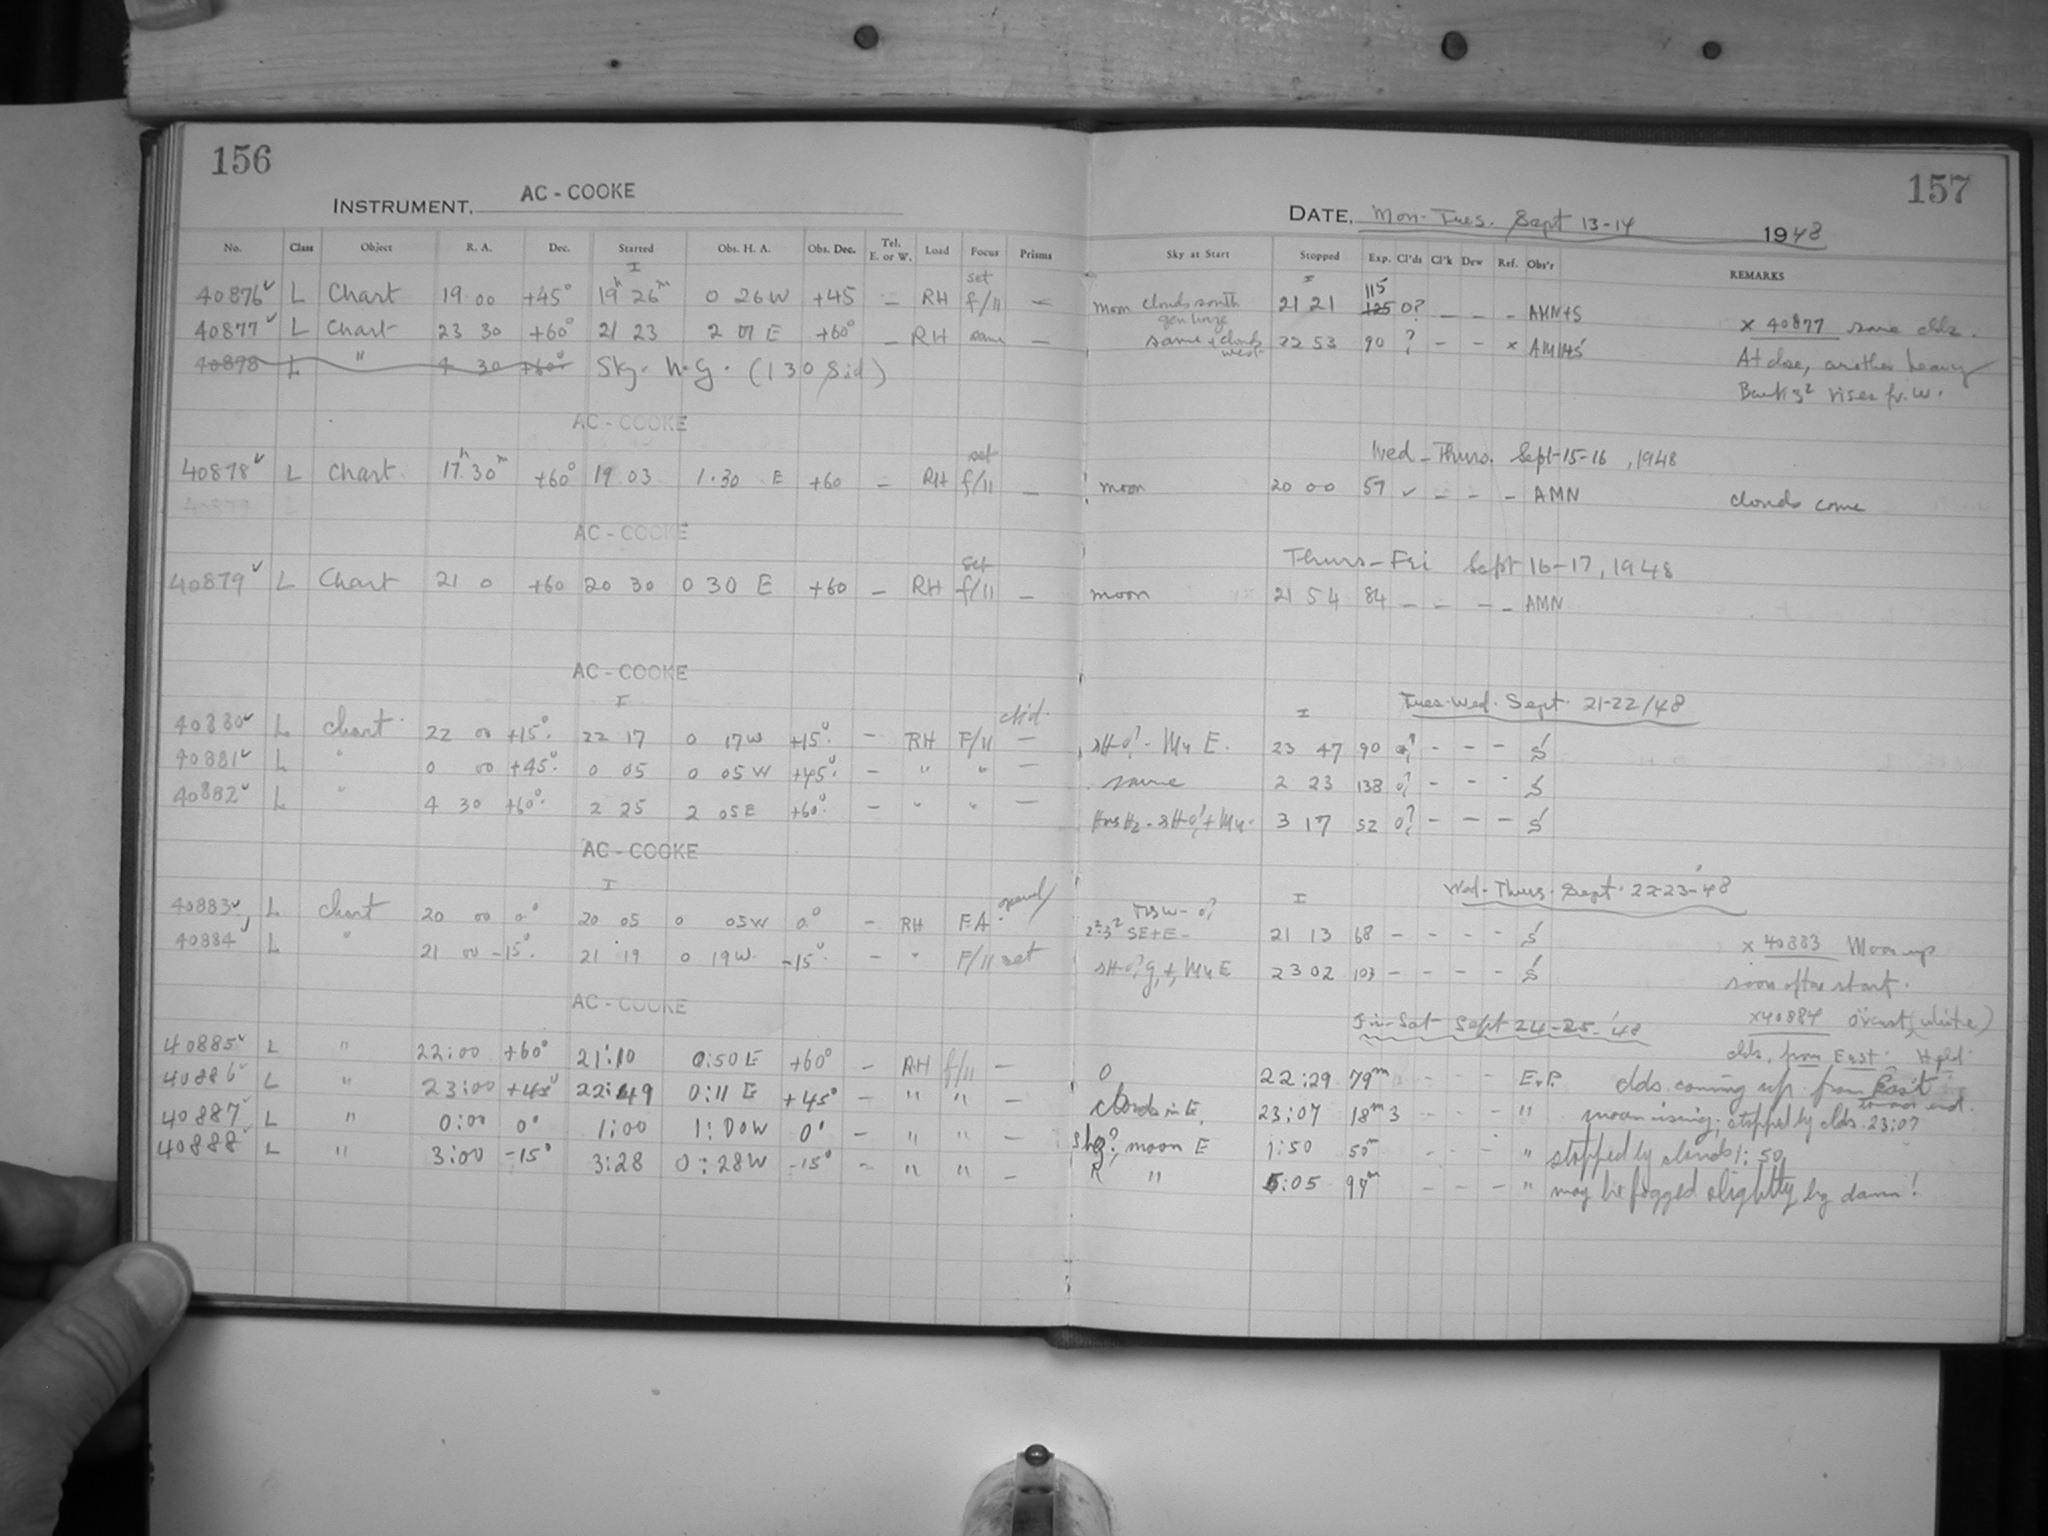 156
INSTRUMENT, AC - COOKE
No. Class Object R. A. Dec. Started Obs. H. A. Obs. Dec. Tel. E. or W. Load Focus Prisms
40876 L Chart 19 00 +45° 19h 26m 0 26 W +45 — RH set f/11 —
40877 L Chart 23 30 +60° 21 23 2 07 E +60° — RH same —
40878 L " 4 30 +60° Sky. n.g. (130 Sid)
AC - COOKE
40878 L Chart. 17h 30m +60° 19 03 1.30 E +60 — RH set f/11 —
40879
AC - COOKE
40879 L Chart 21 0 +60 20 30 0 30 E +60 — RH set f/11 —
AC - COOKE
40880 L Chart 22 00 +15° 22 17 0 17 W +15° — RH F/11 —
40881 L " 0 00 +45° 0 05 0 05 W +45° — " " —
40882 L " 4 30 +60° 2 25 2 05 E +60° — " " —
AC - COOKE
40883 L Chart 20 00 0° 20 05 0 05 W 0° — RH FA
40884 L " 21 00 -15° 21 19 0 19 W -15° — " F/11 set
AC - COOKE
40885 L " 22:00 +60° 21:10 0:50 E +60° — RH f/11 —
40886 L " 23:00 +45° 22:49 0:11 E +45° — " " —
40887 L " 0:00 0° 1:00 1:00 W 0° — " " —
40888 L " 3:00 -15° 3:28 0:28 W -15° — " " —
157
DATE, Mon-Tues. Sept 13-14 1948
Sky at Start Stopped Exp. Cl'ds Cl'k Dew Ref. Obs'r REMARKS
moon clouds south gen haze 21 21 115 125 0? — — — AMN+S x 40877 same clds.
same + clouds west 22 53 90 ? — — x AMN+S At close, another heavy
Bank 3² rises fr. W.
Wed - Thurs. Sept-15-16, 1948
moon 20 00 57 ✓ — — — AMN clouds come
Thurs-Fri Sept 16-17, 1948
moon 21 54 84 — — — — AMN
Tues-Wed. Sept. 21-22/48
23 47 90 0? — — — S
same 2 23 138 0? — — — S
3 17 52 0? — — — S
Wed-Thurs. Sept. 22-23-'48
SE+E 21 13 68 — — — — S x 40883 Moon up
23 02 103 — — — — S soon after start.
x 40884 (white)
Fri-Sat Sept 24-25-'48
clds, from East.
0 22:29 79m — — — E.P. clds. coming up from East
clouds in E. 23:07 18m 3 — — — " moon rising; stopped by clds. 23:07
moon E 1:50 50m — — — " stopped by clouds 1:50
" 5:05 97m — — — " may be fogged slightly by dawn!